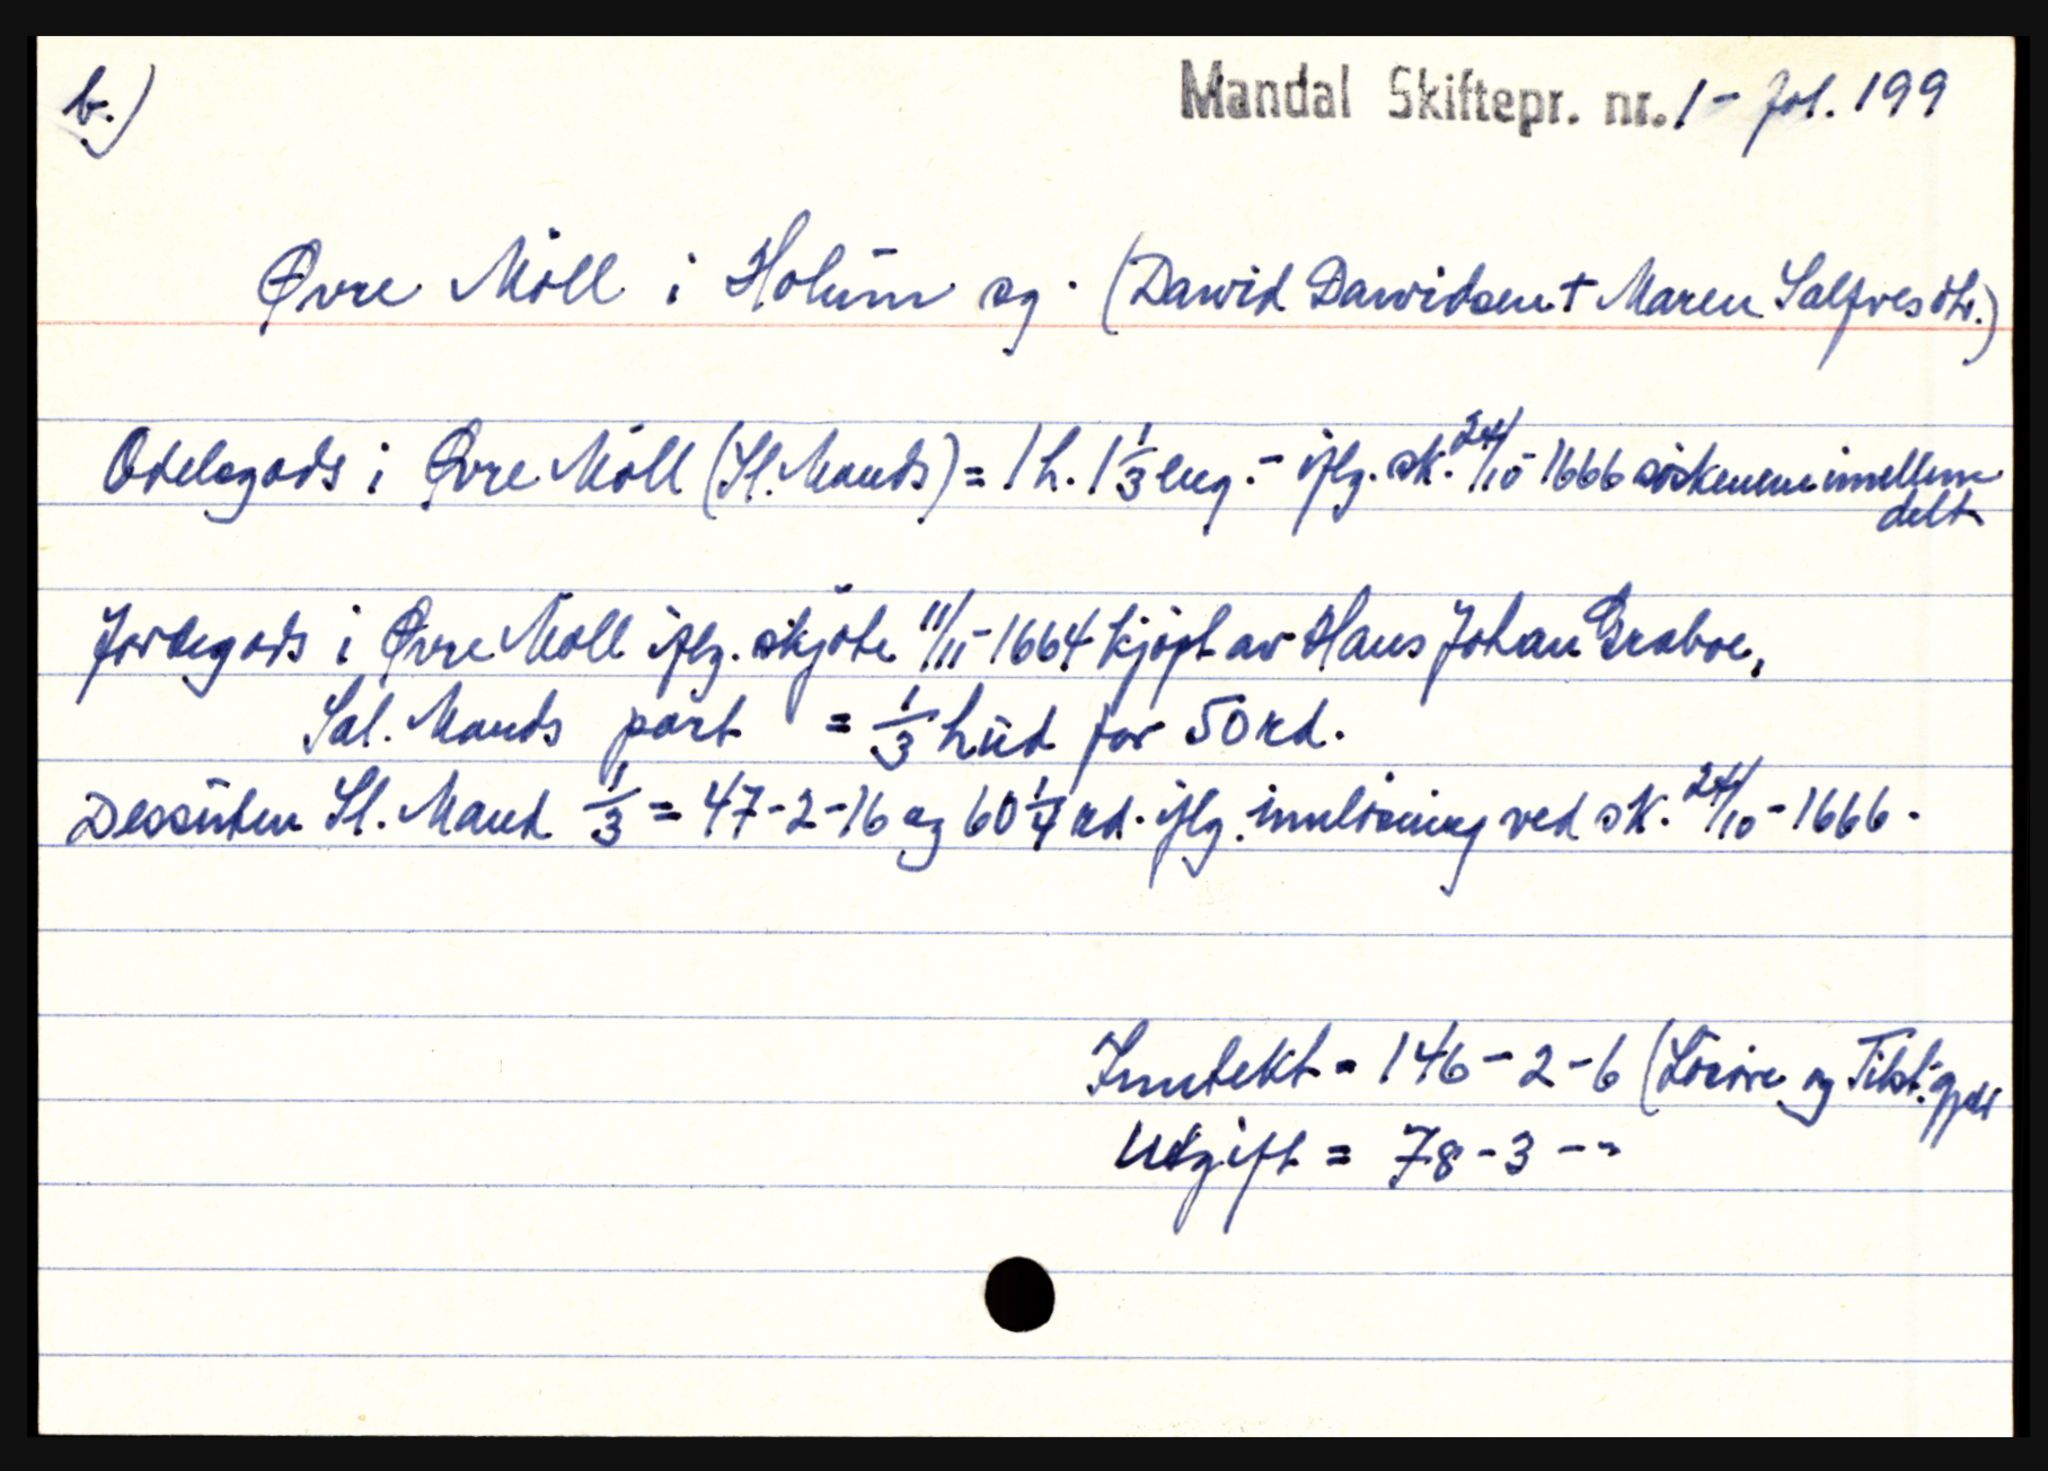 b.)
Mandal Skiftepr. nr. 1 - fol. 199
Øvre Möll i Holum sg. (Dawid Dawidsen + Maren Salfvesdtr.)
Odelsgods i Øvre Möll (Sl. Mands) = 1 h. 1 1/3 eng. - iflg. sk. 24/10 - 1666 söskenene imellem
delt
Jordegods i Øvre Möll iflg. skjöte 11/11 - 1664 kjöpt av Hans Johan Graboe,
Sal. Mands part = 1/3 hud for 50 rd.
Dessuten Sl. Mand 1/3 = 47-2-16 og 60 1/4 rd. iflg. innlösning ved sk. 24/10 - 1666.
Inntekt = 146-2-6 (Lösöre og Tilst. gjeld
Utgift = 78-3--